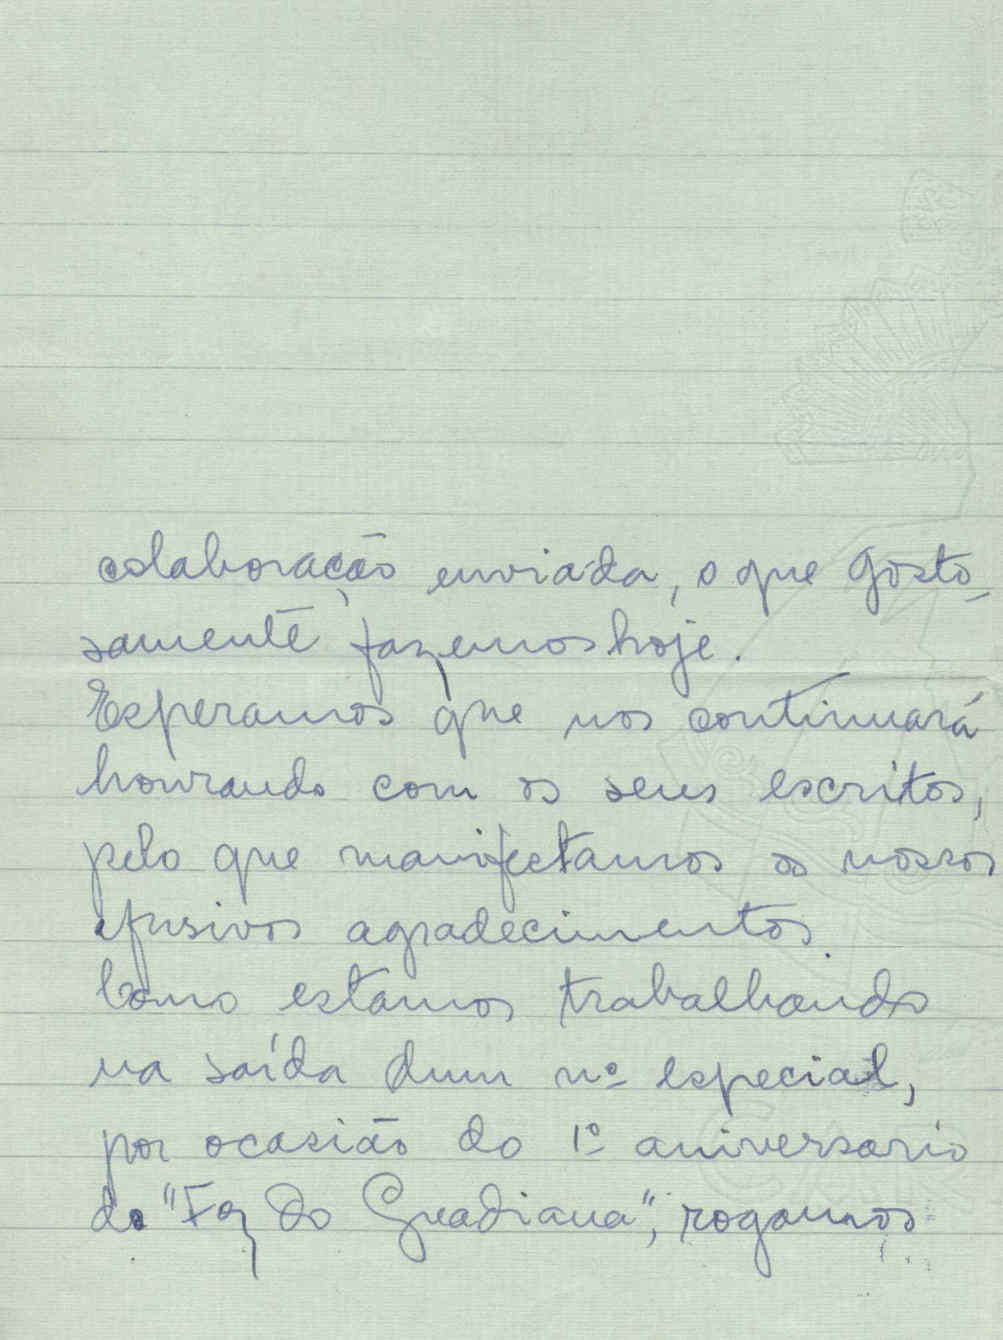 colaboração enviada, o que gosto_
samente fazemos hoje.
Esperamos que nos continuará
honrando com os seus escritos,
pelo que manifestamos os nossos
efusivos agradecimentos.
Como estamos trabalhando
na saída dum nº especial,
por ocasião do 1º aniversario
do "Foz do Guadiana", rogamos